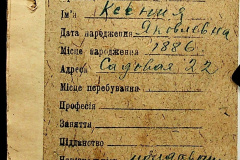 Ім'я Ксения
Яковлевна
Дата народження
Місце народження 1886
Адреса Садовая 22
Місце перебування
Професія
Заняття
Підданство